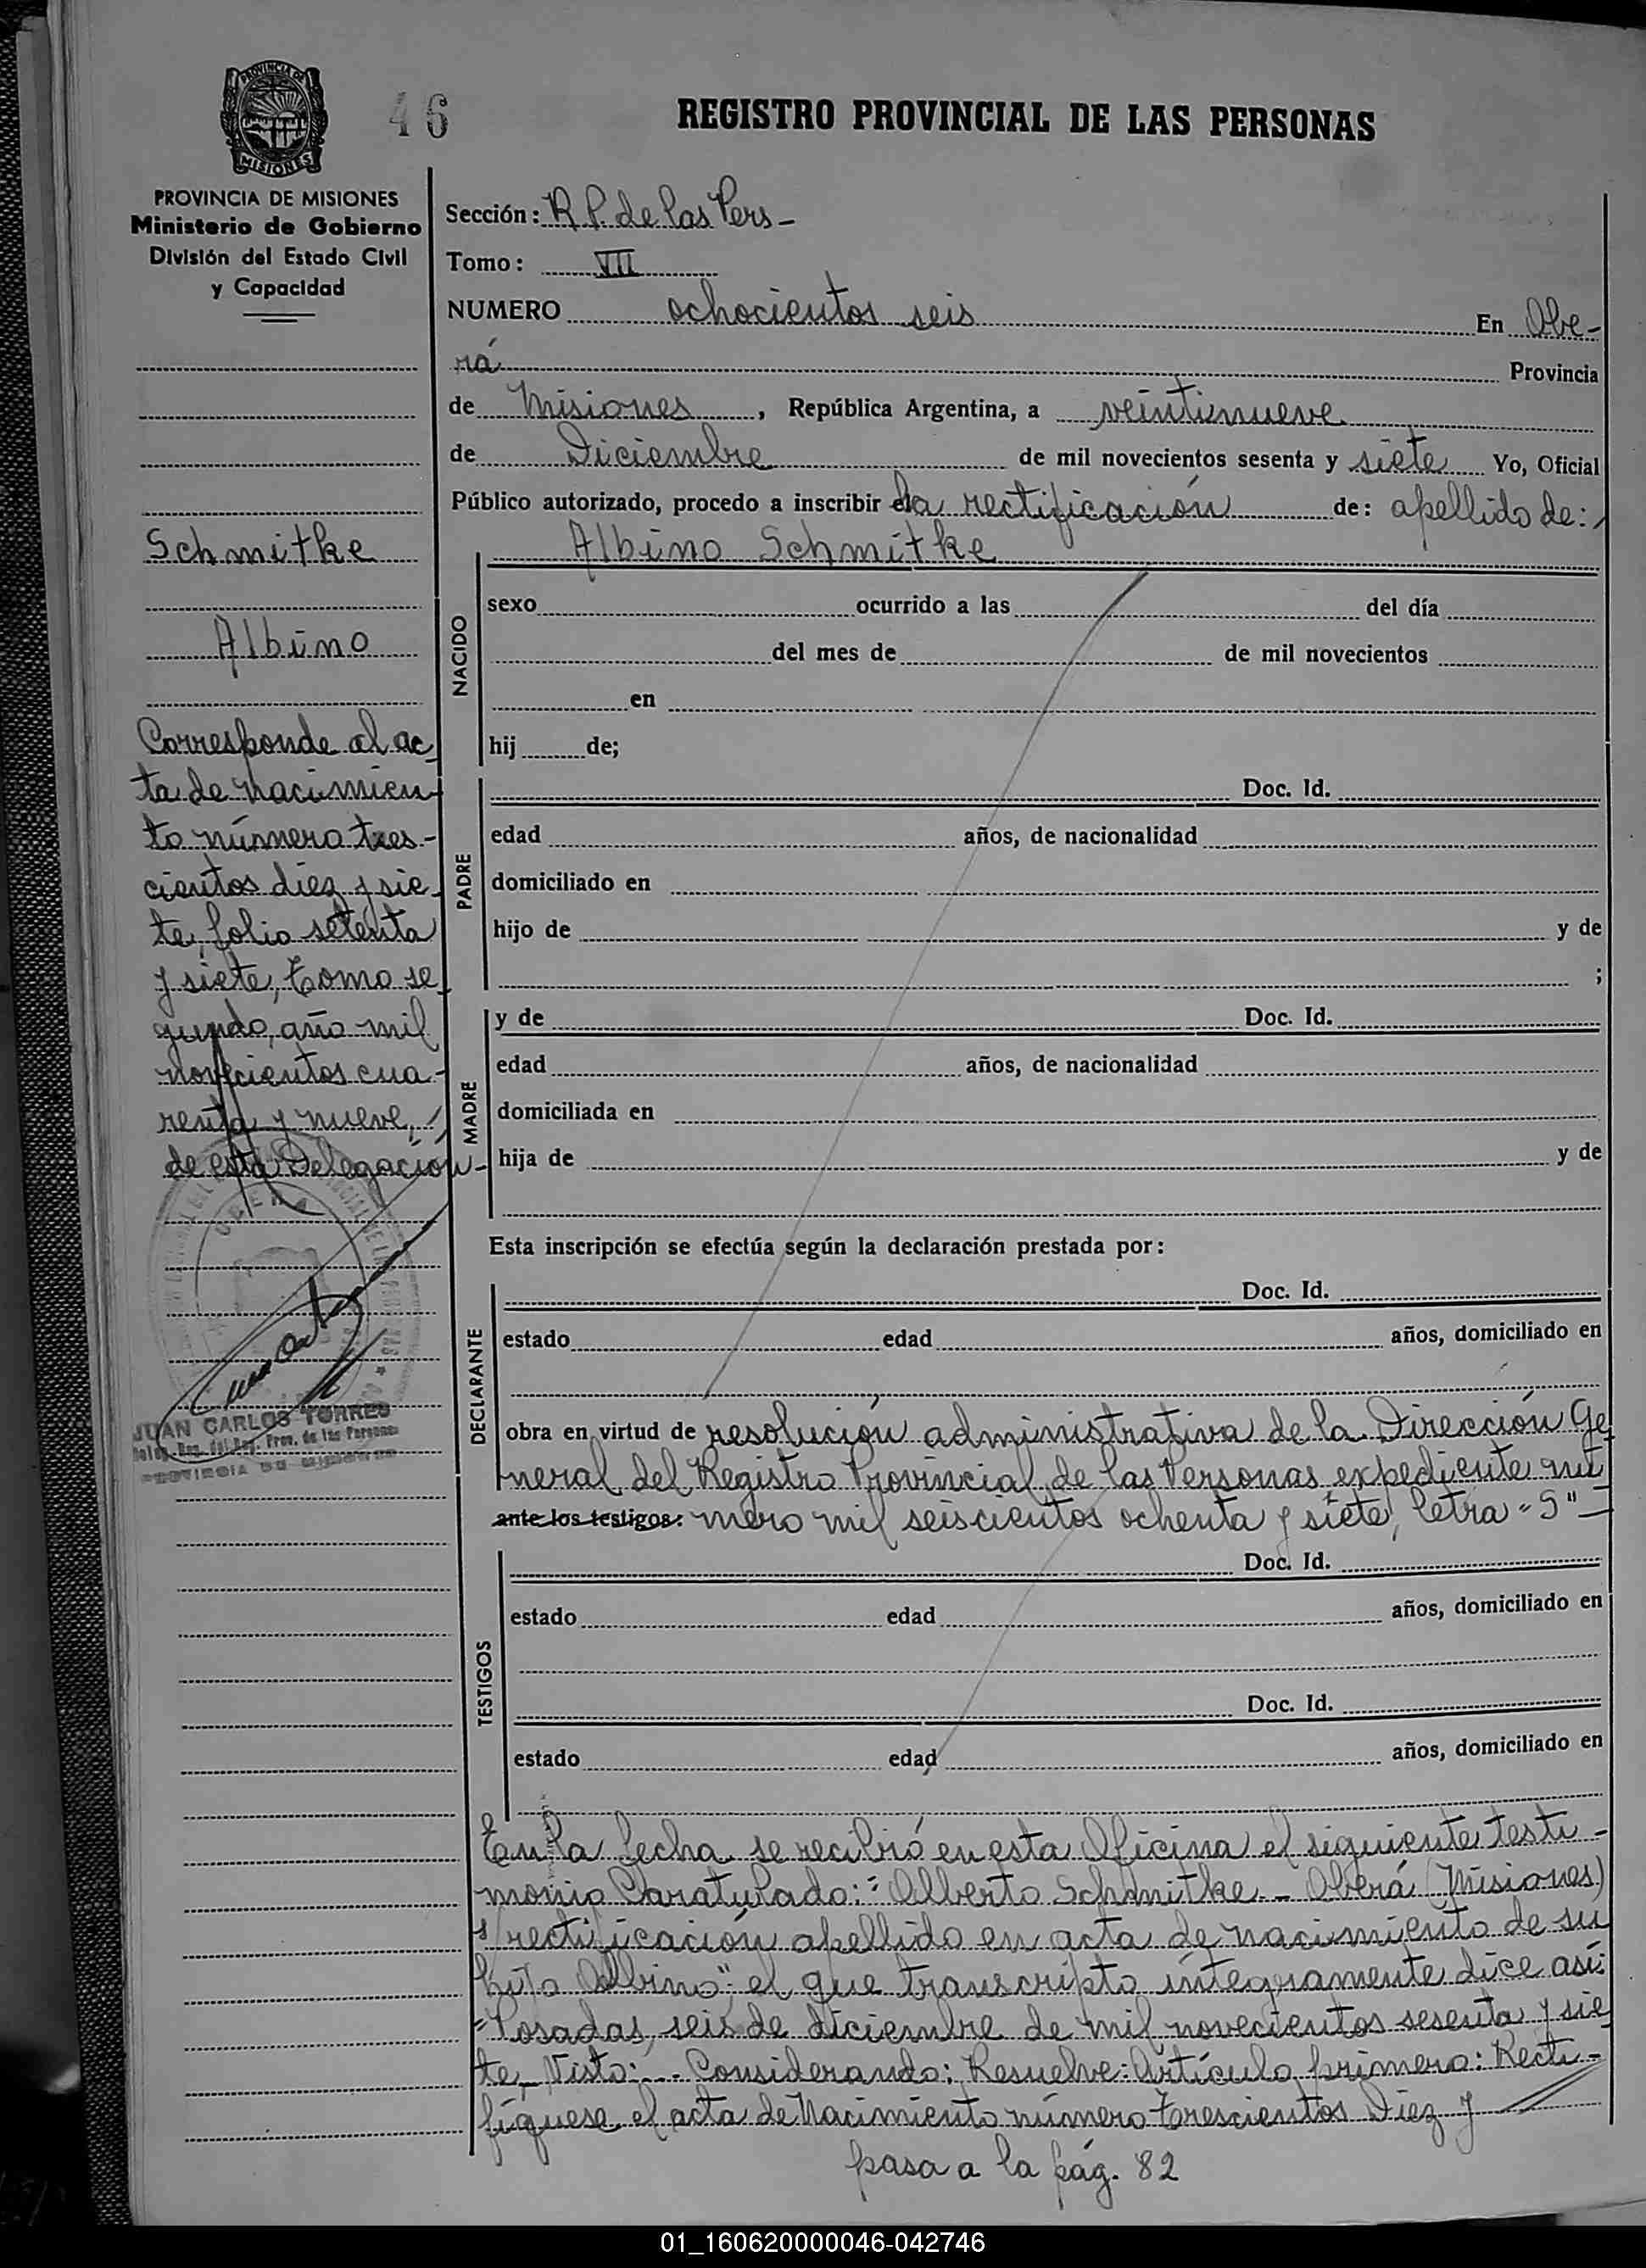 46
REGISTRO PROVINCIAL DE LAS PERSONAS
PROVINCIA DE MISIONES
PROVINCIA DE MISIONES
Ministerio de Gobierno
División del Estado Civil
y Capacidad
Schmitke
Albino
Corresponde al ac
ta de nacimien
to número tres-
cientos diez y sie
te, folio setenta
y siete, tomo se
gundo, año mil
novecientos cua-
renta y nueve,
de esta Delegación-
OBERA
JUAN CARLOS TORRES
Reg. Prov. de las Personas
PROVINCIA DE MISIONES
Sección: R.P. de las Pers-
Tomo: VII
NUMERO ochocientos seis En Obe-
rá Provincia
de Misiones, República Argentina, a veintinueve
de Diciembre de mil novecientos sesenta y siete Yo, Oficial
Público autorizado, procedo a inscribir la rectificación de: apellido de:
Albino Schmitke
NACIDO
sexo ocurrido a las del día
del mes de de mil novecientos
en
hij de;
PADRE
Doc. Id.
edad años, de nacionalidad
domiciliado en
hijo de y de
;
MADRE
y de Doc. Id.
edad años, de nacionalidad
domiciliada en
hija de y de
Esta inscripción se efectúa según la declaración prestada por:
DECLARANTE
Doc. Id.
estado edad años, domiciliado en
obra en virtud de resolución administrativa de la Dirección Ge
neral del Registro Provincial de las Personas expediente nú
ante los testigos: mero mil seiscientos ochenta y siete, letra "S"
TESTIGOS
Doc. Id.
estado edad años, domiciliado en
Doc. Id.
estado edad años, domiciliado en
En la fecha se recibió en esta Oficina el siguiente testi-
monio Caratulado: "Alberto Schmitke - Oberá (Misiones)
s/rectificación apellido en acta de nacimiento de su
hijo Albino"; el que transcripto íntegramente dice así:
"Posadas, seis de diciembre de mil novecientos sesenta y sie
te - Visto:... Considerando: Resuelve: Artículo primero: Recti-
fíquese el acta de Nacimiento número trescientos Diez y
pasa a la pág. 82
01_160620000046-042746